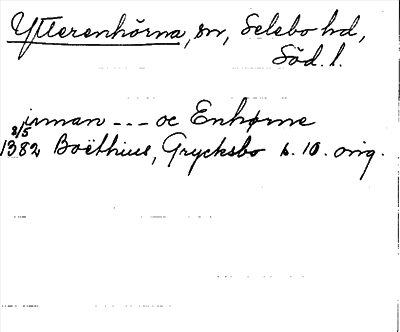 Ytterenhörna, sn, Selebo hd,
Söd. l.
innan --- oc Enhørne
8/5
1382 Boëthius, Grycksbo b. 10. orig.